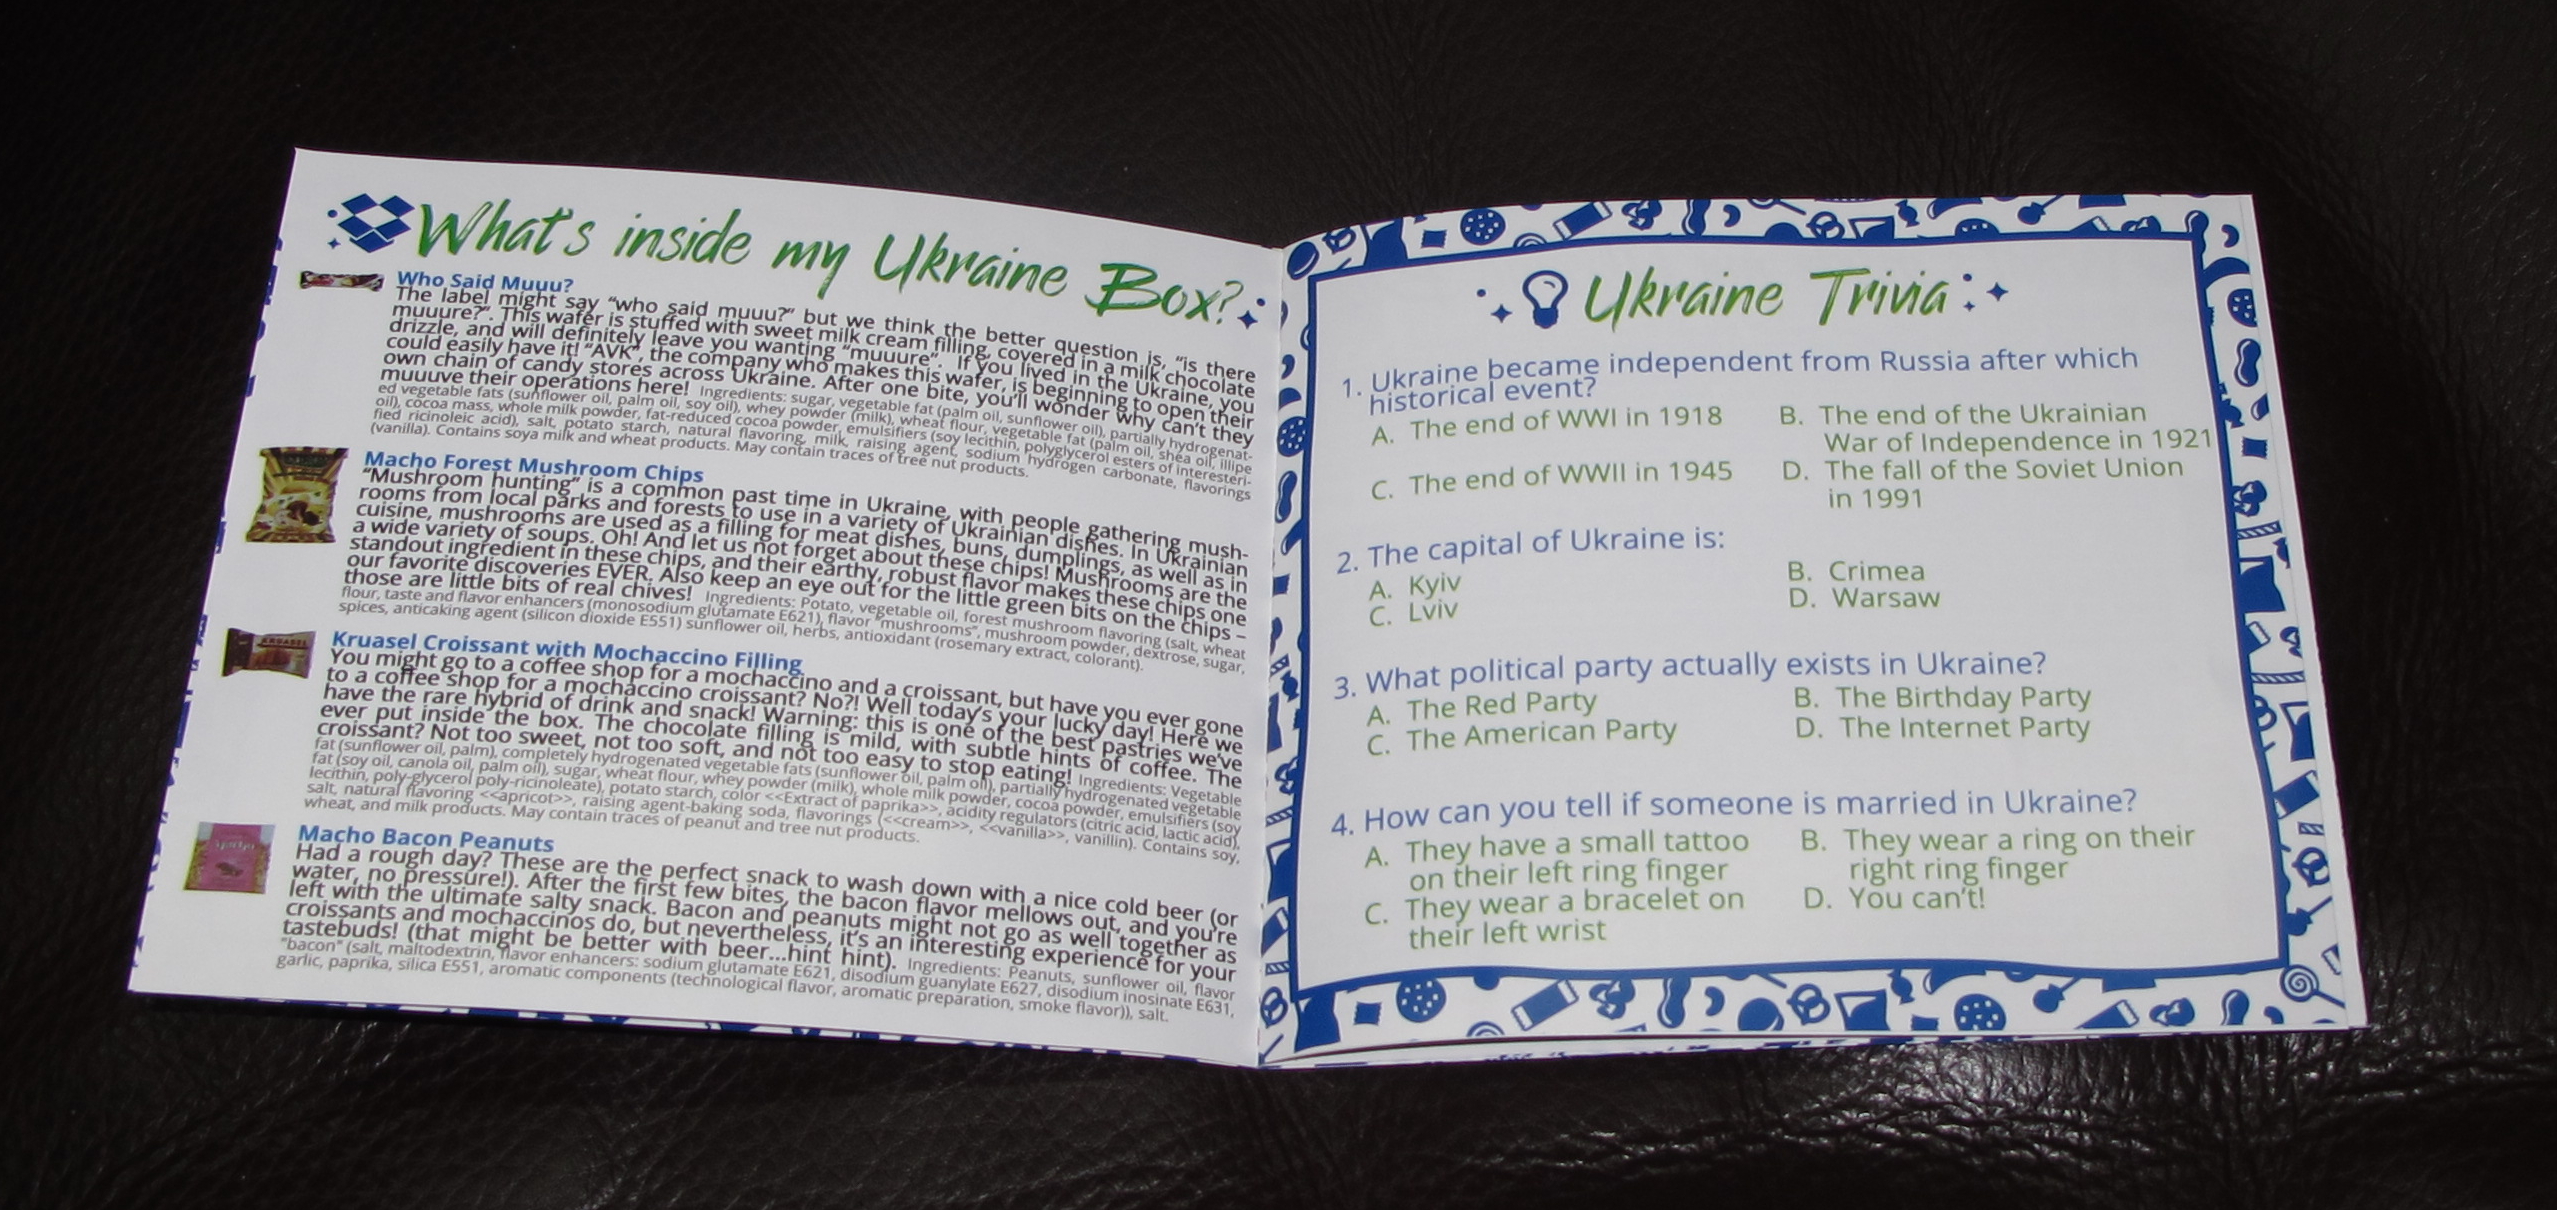 What's inside my Ukraine Box?
Who Said Muuu?
The label might say “who said muuu?” but we think the better question is, “is there
muuure?”. This wafer is stuffed with sweet milk cream filling, covered in a milk chocolate
drizzle, and will definitely leave you wanting “muuure”. If you lived in the Ukraine, you
could easily have it! “AVK”, the company who makes this wafer, is beginning to open their
own chain of candy stores across Ukraine. After one bite, you’ll wonder why can’t they
muuuve their operations here! Ingredients: sugar, vegetable fat (palm oil, sunflower oil), partially hydrogenat-
ed vegetable fats (sunflower oil, palm oil, soy oil), whey powder (milk), wheat flour, vegetable fat (palm oil, shea oil, illipe
oil), cocoa mass, whole milk powder, fat-reduced cocoa powder, emulsifiers (soy lecithin, polyglycerol esters of interesteri-
fied ricinoleic acid), salt, potato starch, natural flavoring, milk, raising agent, sodium hydrogen carbonate, flavorings
(vanilla). Contains soya milk and wheat products. May contain traces of tree nut products.
Macho Forest Mushroom Chips
“Mushroom hunting” is a common past time in Ukraine, with people gathering mush-
rooms from local parks and forests to use in a variety of Ukrainian dishes. In Ukrainian
cuisine, mushrooms are used as a filling for meat dishes, buns, dumplings, as well as in
a wide variety of soups. Oh! And let us not forget about these chips! Mushrooms are the
standout ingredient in these chips, and their earthy, robust flavor makes these chips one
our favorite discoveries EVER. Also keep an eye out for the little green bits on the chips –
those are little bits of real chives! Ingredients: Potato, vegetable oil, forest mushroom flavoring (salt, wheat
flour, taste and flavor enhancers (monosodium glutamate E621), flavor "mushrooms", mushroom powder, dextrose, sugar,
spices, anticaking agent (silicon dioxide E551) sunflower oil, herbs, antioxidant (rosemary extract, colorant).
Kruasel Croissant with Mochaccino Filling
You might go to a coffee shop for a mochaccino and a croissant, but have you ever gone
to a coffee shop for a mochaccino croissant? No?! Well today’s your lucky day! Here we
have the rare hybrid of drink and snack! Warning: this is one of the best pastries we’ve
ever put inside the box. The chocolate filling is mild, with subtle hints of coffee. The
croissant? Not too sweet, not too soft, and not too easy to stop eating! Ingredients: Vegetable
fat (sunflower oil, palm), completely hydrogenated vegetable fats (sunflower oil, palm oil), partially hydrogenated vegetable
fat (soy oil, canola oil, palm oil), sugar, wheat flour, whey powder (milk), whole milk powder, cocoa powder, emulsifiers (soy
lecithin, poly-glycerol poly-ricinoleate), potato starch, color <<Extract of paprika>>, acidity regulators (citric acid, lactic acid),
salt, natural flavoring <<apricot>>, raising agent-baking soda, flavorings (<<cream>>, <<vanilla>>, vanillin). Contains soy,
wheat, and milk products. May contain traces of peanut and tree nut products.
Macho Bacon Peanuts
Had a rough day? These are the perfect snack to wash down with a nice cold beer (or
water, no pressure!). After the first few bites, the bacon flavor mellows out, and you’re
left with the ultimate salty snack. Bacon and peanuts might not go as well together as
croissants and mochaccinos do, but nevertheless, it’s an interesting experience for your
tastebuds! (that might be better with beer...hint hint). Ingredients: Peanuts, sunflower oil, flavor
"bacon" (salt, maltodextrin, flavor enhancers: sodium glutamate E621, disodium guanylate E627, disodium inosinate E631,
garlic, paprika, silica E551, aromatic components (technological flavor, aromatic preparation, smoke flavor)), salt.
Ukraine Trivia
1. Ukraine became independent from Russia after which
historical event?
A. The end of WWI in 1918
B. The end of the Ukrainian
War of Independence in 1921
C. The end of WWII in 1945
D. The fall of the Soviet Union
in 1991
2. The capital of Ukraine is:
A. Kyiv
B. Crimea
C. Lviv
D. Warsaw
3. What political party actually exists in Ukraine?
A. The Red Party
B. The Birthday Party
C. The American Party
D. The Internet Party
4. How can you tell if someone is married in Ukraine?
A. They have a small tattoo
on their left ring finger
B. They wear a ring on their
right ring finger
C. They wear a bracelet on
their left wrist
D. You can’t!